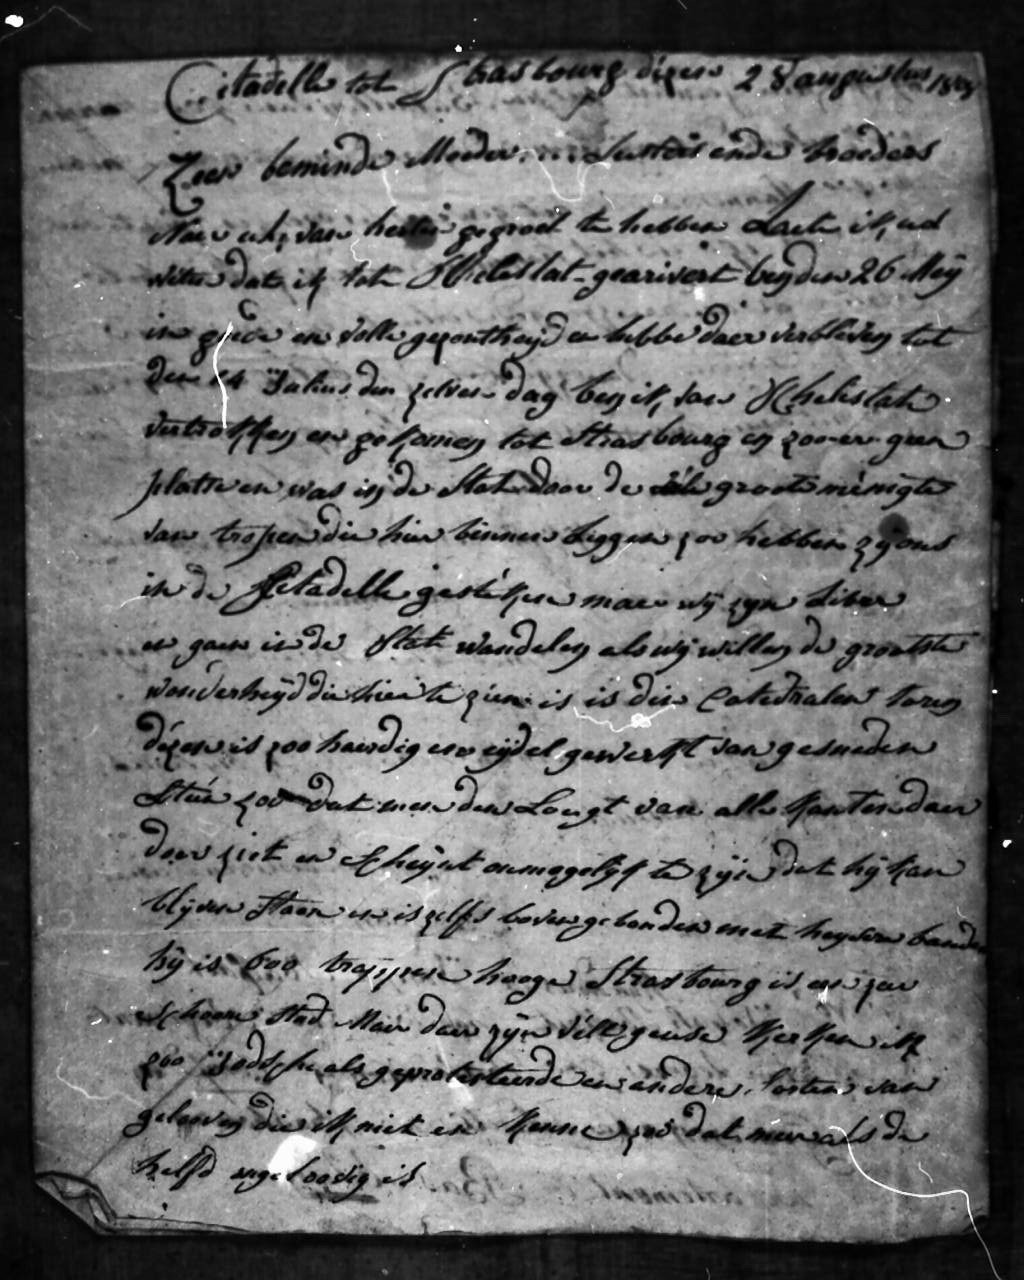 Citadelle tot Strasbourg dézen 28 augustus
Zeer beminde Moeder susters ende broeders
Naer ul, van herten gegroet te hebben Laete ik, ul
weten dat ik tot Schelestat gearivert ben den 26 Meÿ
in goede en volle gezontheÿd en hebbe daer verbleven tot
den 14 Julius den zelven dag ben ik, van Schelestat
vertrokken en gekomen tot Strasbourg en zoo er geen
platse en was in de Stat door de groote menigte
van tropen die hier binnen liggen zoo hebben zÿ ons
in de Citadelle gestéken maer wÿ zÿn Liber
en gaen in de Stat wandelen als wÿ willen de grootste
wonderheÿd die hier te zien is is die Catedralen toren
dézen is zoo haerdig en eÿdel gewerkt van gesneden
Steen zoo dat men den Lougt van alle kanten daer
door ziet en Scheÿnt onmogelÿk te zÿn dat hÿ kan
blÿven Staen en is zelfs boven gebonden met heÿsere banden
hÿ is 600 trappen hooge Strasbourg is en zeer
Schoon Stad Maer daer zÿn geuse kerken
zoo Jodsche als geprotesteerde en andere Sorten van
gelooven die ik niet en kenne zoo dat meer als de
helfd ongeloovig is